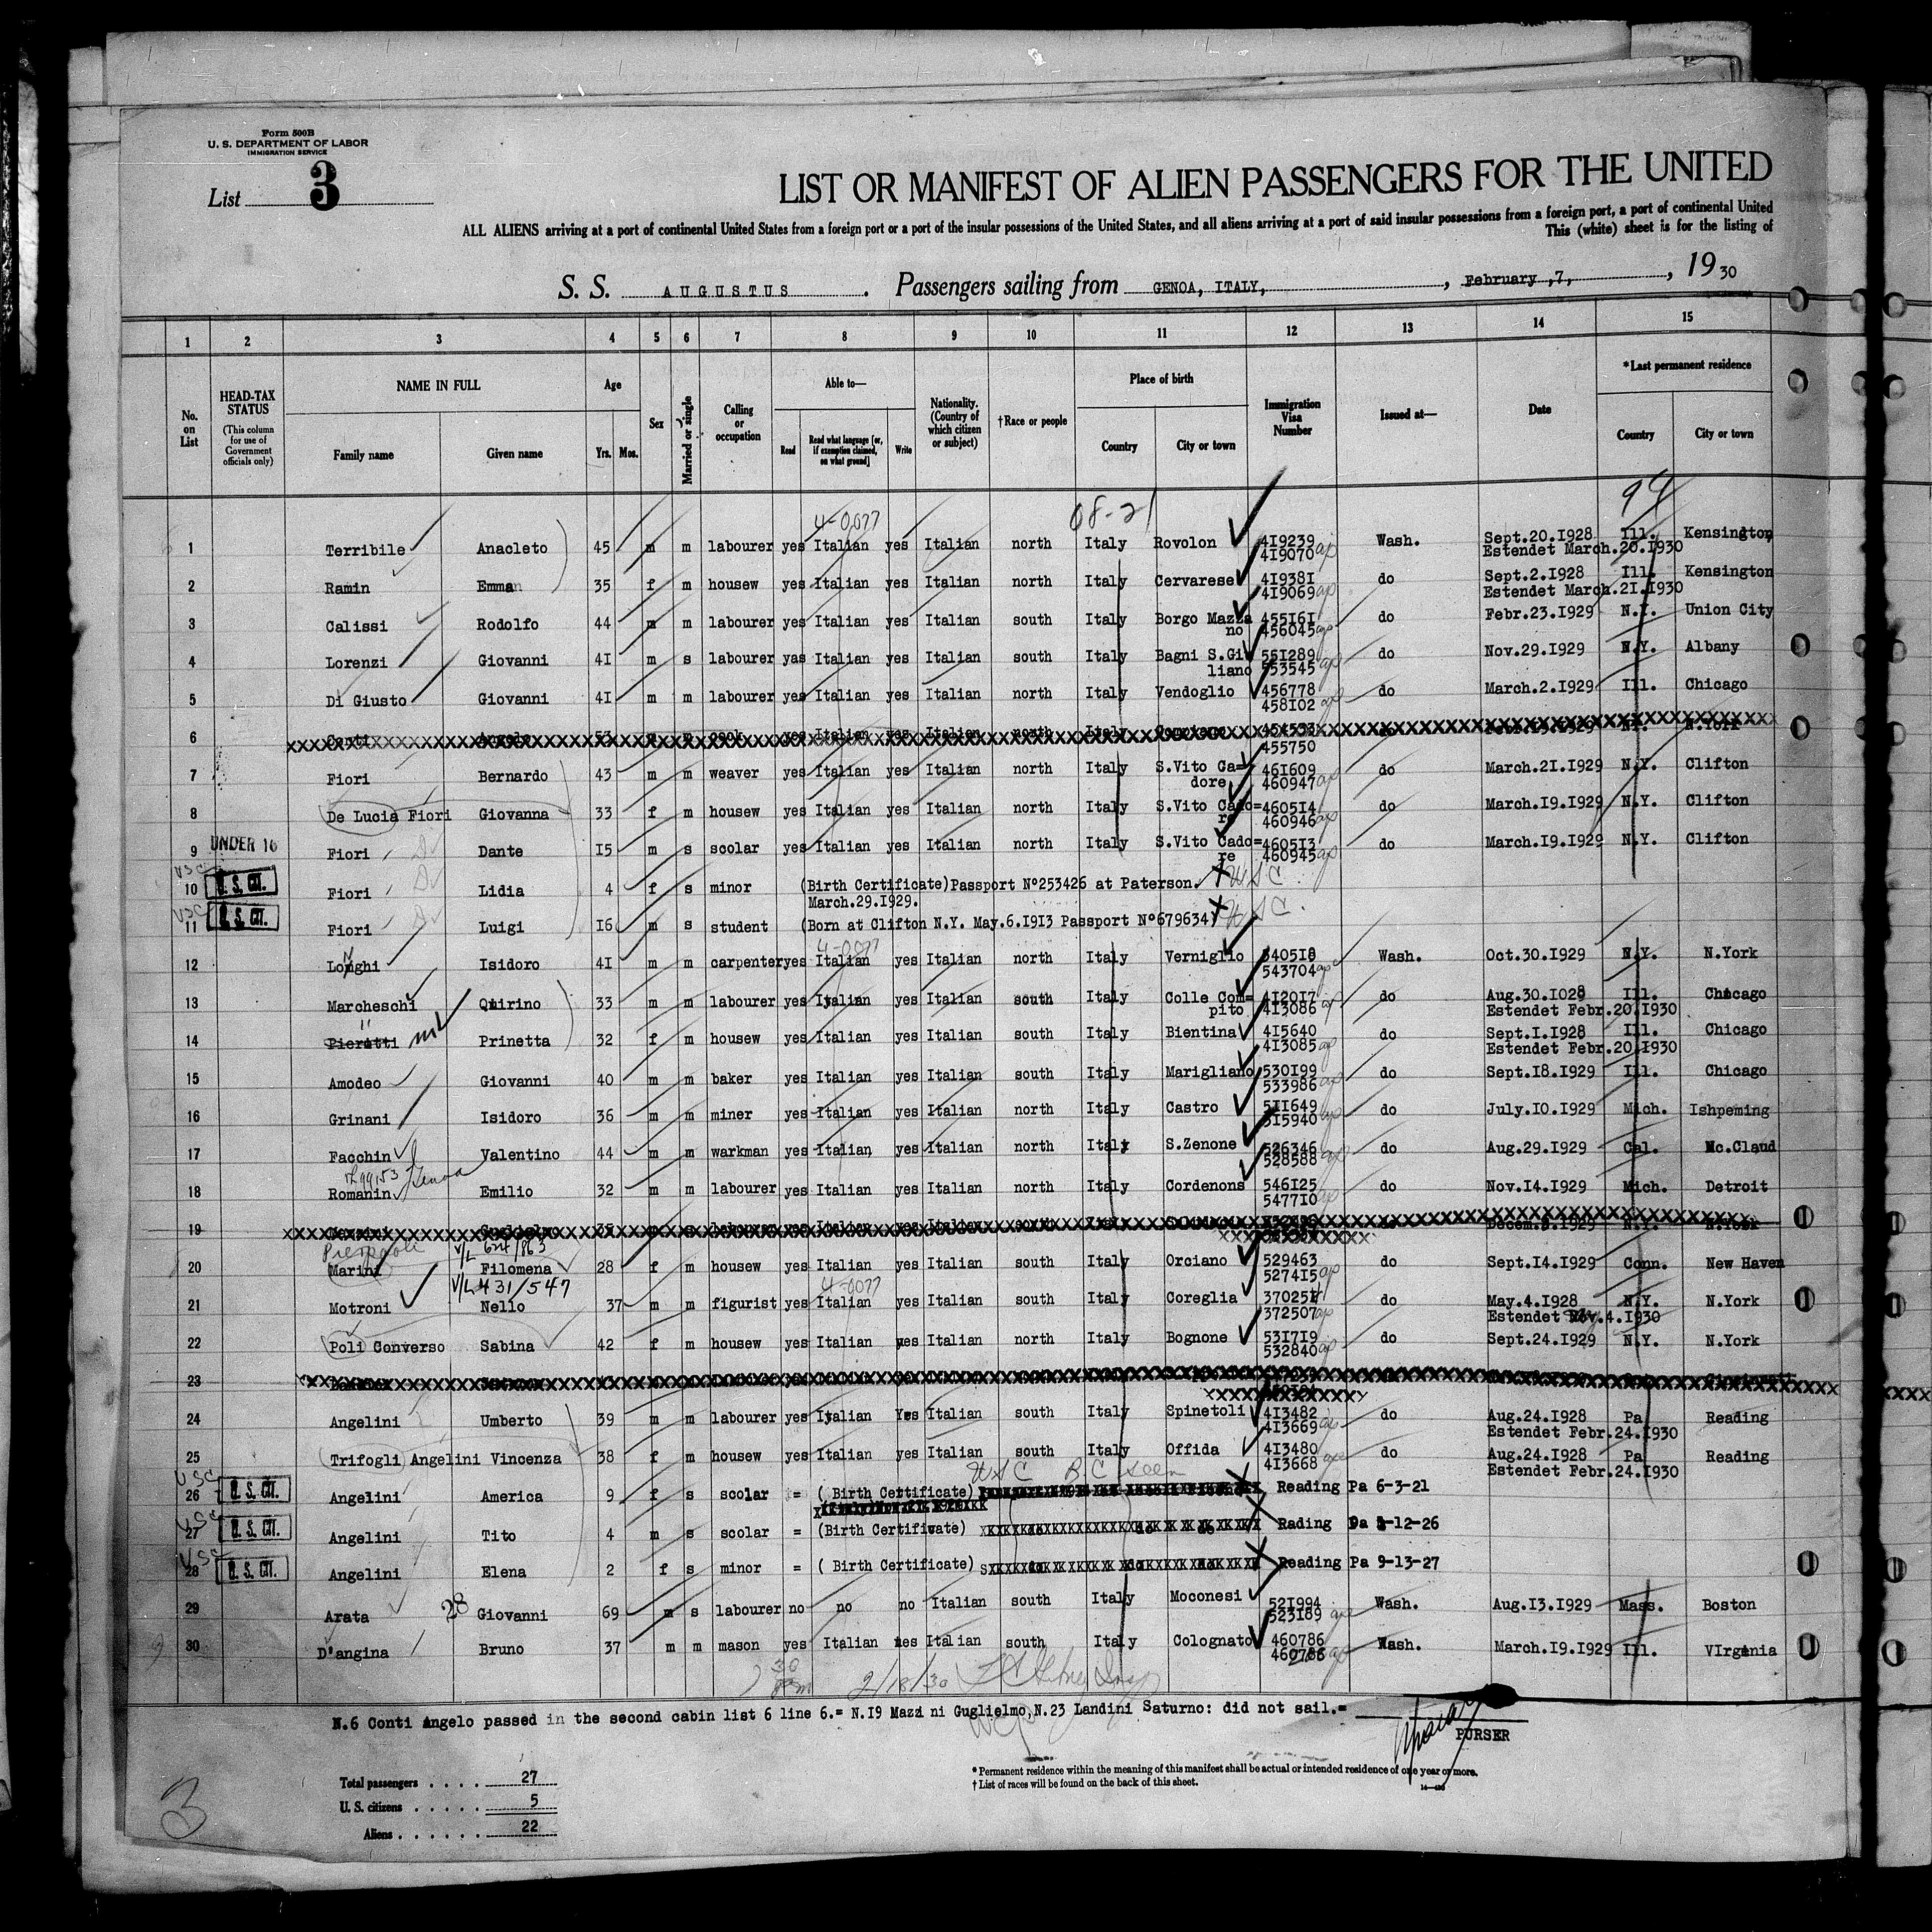 Form 500B
U. S. DEPARTMENT OF LABOR
IMMIGRATION SERVICE
List 3
LIST OR MANIFEST OF ALIEN PASSENGERS FOR THE UNITED
ALL ALIENS arriving at a port of continental United States from a foreign port or a port of the insular possessions of the United States, and all aliens arriving at a port of said insular possessions from a foreign port, a port of continental United
This (white) sheet is for the listing of
S. S. AUGUSTUS. Passengers sailing from GENOA, ITALY, , February ,7, , 19 30
1 2 3 4 5 6 7 8 9 10 11 12 13 14 15
No. on List
HEAD-TAX STATUS (This column for use of Government officials only)
NAME IN FULL Family name Given name
Age Yrs. Mos.
Sex
Married or single
Calling or occupation
Able to— Read Read what language [or, if exemption claimed, on what ground] Write
Nationality. (Country of which citizen or subject)
†Race or people
Place of birth Country City or town
Immigration Visa Number
Issued at—
Date
*Last permanent residence Country City or town
4-0077 08-21 94
1 Terribile Anacleto 45 m m labourer yes Italian yes Italian north Italy Rovolon 4I9239 Wash. Sept.20.I928 Ill. Kensington
4I9070 Estendet March.20.I930
2 Ramin Emma 35 f m housew yes Italian yes Italian north Italy Cervarese 4I938I do Sept.2.I928 Ill. Kensington
4I9069 Estendet March.2I.I930
3 Calissi Rodolfo 44 m m labourer yes Italian yes Italian south Italy Borgo Mazza 455I6I do Febr.23.I929 N.Y. Union City
no 456045
4 Lorenzi Giovanni 4I m s labourer yas Italian yes Italian south Italy Bagni S.Giu 55I289 do Nov.29.I929 N.Y. Albany
liano 553545
5 Di Giusto Giovanni 4I m m labourer yes Italian yes Italian north Italy Vendoglio 456778 do March.2.I929 Ill. Chicago
458I02
6 Conti Angelo 53 m m cook yes Italian yes Italian north Italy do N.York
455750
7 Fiori Bernardo 43 m m weaver yes Italian yes Italian north Italy S.Vito Ca= 46I609 do March.2I.I929 N.Y. Clifton
dore 460947
8 De Lucia Fiori Giovanna 33 f m housew yes Italian yes Italian north Italy S.Vito Cado= 4605I4 do March.I9.I929 N.Y. Clifton
re 460946
UNDER 16
9 Fiori Dante I5 m s scolar yes Italian yes Italian north Italy S.Vito Cado= 4605I3 do March.I9.I929 N.Y. Clifton
re 460945
USC
10 U. S. CIT. Fiori Lidia 4 f s minor (Birth Certificate) Passport N°253426 at Paterson. USC
March.29.I929.
USC
11 U. S. CIT. Fiori Luigi I6 m s student (Born at Clifton N.Y. May.6.I9I3 Passport N°679634) USC
4-0077
12 Longhi Isidoro 4I m m carpenter yes Italian yes Italian north Italy Verniglio 5405I8 Wash. Oct.30.I929 N.Y. N.York
543704
13 Marcheschi Quirino 33 m m labourer yes Italian yes Italian south Italy Colle Com= 4I20I7 do Aug.30.I028 Ill. Chicago
pito 4I3086 Estendet Febr.20.I930
14 Pieratti Prinetta 32 f m housew yes Italian yes Italian south Italy Bientina 4I5640 do Sept.I.I928 Ill. Chicago
4I3085 Estendet Febr.20.I930
15 Amodeo Giovanni 40 m m baker yes Italian yes Italian south Italy Marigliano 530I99 do Sept.I8.I929 Ill. Chicago
533986
16 Grinani Isidoro 36 m m miner yes Italian yes Italian north Italy Castro 5II649 do July.I0.I929 Mich. Ishpeming
5I5940
17 Facchin Valentino 44 m m warkman yes Italian yes Italian north Italy S.Zenone 526346 do Aug.29.I929 Cal. Mc.Claud
528588
18 Romanin Emilio 32 m m labourer yes Italian yes Italian north Italy Cordenons 546I25 do Nov.I4.I929 Mich. Detroit
5477I0
19 labourer yes Italian yes Italian Decem. N.Y. N.York
Pierpaoli V/L 624/863
20 Marini Filomena 28 f m housew yes Italian yes Italian south Italy Orciano 529463 do Sept.I4.I929 Conn. New Haven
V/L 431/547 4-0077 5274I5
21 Motroni Nello 37 m m figurist yes Italian yes Italian south Italy Coreglia 370251 do May.4.I928 N.Y. N.York
372507 Estendet Nov.4.I930
22 Poli Converso Sabina 42 f m housew yes Italian yes Italian north Italy Bognone 53I7I9 do Sept.24.I929 N.Y. N.York
532840
23
24 Angelini Umberto 39 m m labourer yes Italian Yes Italian south Italy Spinetoli 4I3482 do Aug.24.I928 Pa Reading
4I3669 Estendet Febr.24.I930
25 Trifogli Angelini Vincenza 38 f m housew yes Italian yes Italian south Italy Offida 4I3480 do Aug.24.I928 Pa Reading
4I3668 Estendet Febr.24.I930
USC USC B.C seen
26 U. S. CIT. Angelini America 9 f s scolar = ( Birth Certificate) Reading Pa 6-3-21
USC
27 U. S. CIT. Angelini Tito 4 m s scolar = (Birth Certificate) Rading Pa 3-12-26
USC
28 U. S. CIT. Angelini Elena 2 f s minor = ( Birth Certificate) Reading Pa 9-13-27
29 Arata 28 Giovanni 69 m s labourer no no no Italian south Italy Moconesi 52I994 Wash. Aug.I3.I929 Mass. Boston
523I89
30 D'angina Bruno 37 m m mason yes Italian yes Italian south Italy Colognato 460786 Wash. March.I9.I929 Ill. VIrgenia
460786
30 2/18/30
N.6 Conti Angelo passed in the second cabin list 6 line 6.= N.I9 Mazzi ni Guglielmo,N.23 Landini Saturno: did not sail.=
PURSER
Total passengers . . . . . 27
U. S. citizens . . . . . 5
Aliens . . . . . . 22
* Permanent residence within the meaning of this manifest shall be actual or intended residence of one year or more.
† List of races will be found on the back of this sheet.
3